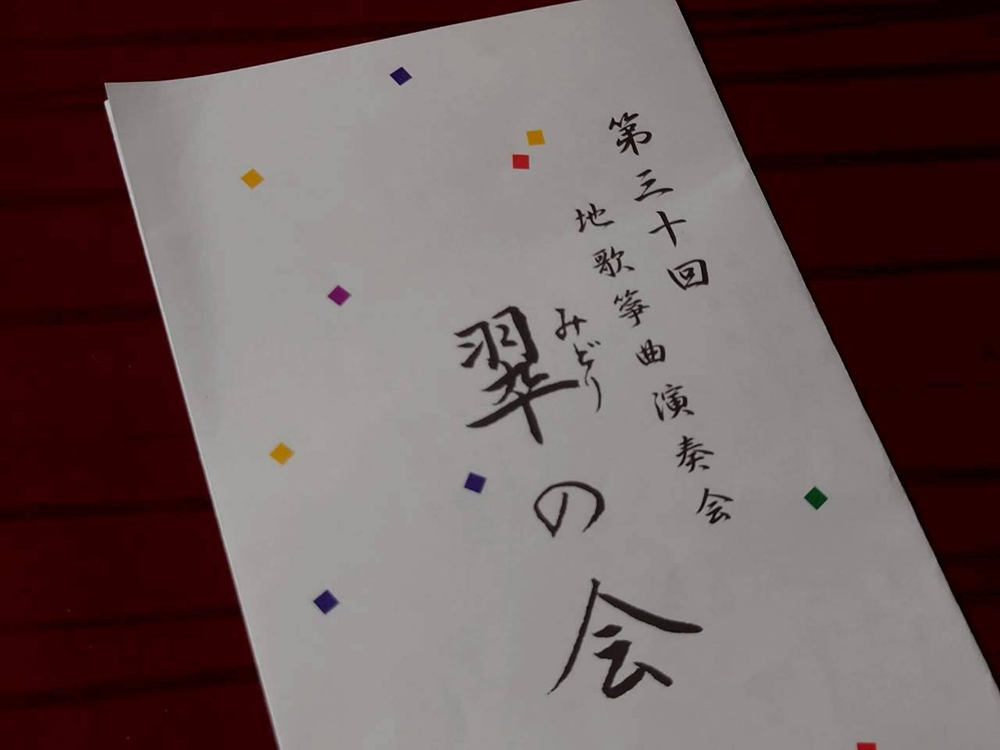 第三十回
地歌箏曲演奏会
みどり
翠の会